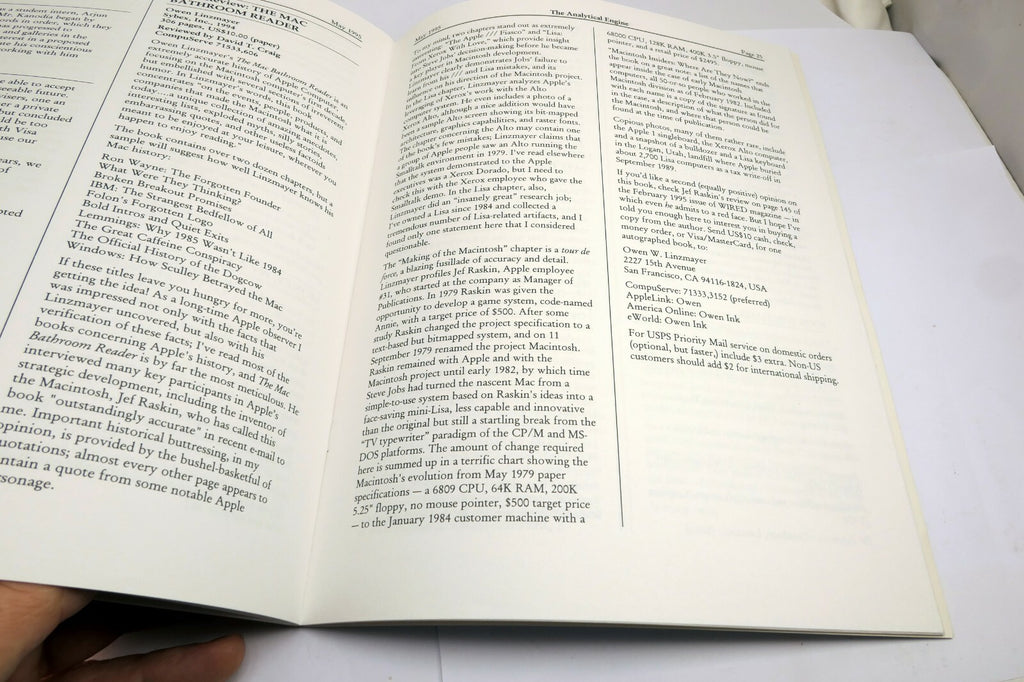 as a student intern, Arjun
Mr. Kanodia began by
ords in order, which they
as progressed to
and galleries in the
terior in a proposed
ate his conscientious
working with him
able to accept
eeable future.
visers, one an
er a private
but concluded
ld be too
th Visa
use our
ears, we
of
oted
Review: THE MAC
BATHROOM READER
May, 1995
Owen Linzmayer
Sybex, Inc., 1994
306 pages, US$10.00 (paper)
Reviewed by David T. Craig
CompuServe 71533,606
Owen Linzmayer's The Mac Bathroom Reader is
an extremely accurate history of Apple Computer,
focusing on the Macintosh. Well researched
but embellished with words, this book is
concentrates "on the events,
companies that made Macintosh what it is
today... a unique collection of amazing anecdotes,
interesting facts, exploded myths, silly stories,
embarrassing quotes, and other useless factoids
meant to be enjoyed at your leisure, wherever you
happen to enjoy reading."
The book contains over two dozen chapters, but a
sample will suggest how well Linzmayer knows his
Mac history:
Ron Wayne: The Forgotten Founder
What Were They Thinking?
Broken Breakout Promises
IBM: The Strangest Bedfellow of All
Folon's Forgotten Logo
Bold Intros and Quiet Exits
Lemmings: Why 1985 Wasn't Like 1984
The Great Caffeine Conspiracy
The Official History of the Dogcow
Windows: How Sculley Betrayed the Mac
If these titles leave you hungry for more, you're
getting the idea! As a long-time Apple observer I
was impressed not only with the facts that
Linzmayer uncovered, but also with his
verification of these facts; I've read most of the
books concerning Apple's history, and The Mac
Bathroom Reader is by far the most meticulous. He
interviewed many key participants in Apple's
strategic development, including the inventor of
the Macintosh, Jef Raskin, who has called this
book "outstandingly accurate" in recent e-mail to
me. Important historical buttressing, in my
opinion, is provided by the bushel-basketful of
uotations; almost every other page appears to
ntain a quote from some notable Apple
sonage.
May, 1995
The Analytical Engine
Page 25
To my mind, two chapters stand out as extremely
"The Apple /// Fiasco" and "Lisa:
With Love," which provide insight
Jobs' decision-making before he became
player in Macintosh development.
clearly demonstrates Jobs' failure to
Apple /// and Lisa mistakes, and its
on the direction of the Macintosh project.
In the Lisa chapter, Linzmayer analyzes Apple's
of Xerox's work with the Alto
computer system. He even includes a photo of a
Xerox Alto, although a nice addition would have
been a sample Alto screen showing its bit-mapped
architecture, graphics capabilities, and raster fonts.
The chapter concerning the Alto may contain one
of the book's few mistakes; Linzmayer claims that
a group of Apple people saw an Alto running the
Smalltalk environment in 1979. I've read elsewhere
that the system demonstrated to the Apple
executives was a Xerox Dorado, but I need to
check this with the Xerox employee who gave the
Smalltalk demo. In the Lisa chapter, also,
Linzmayer did an "insanely great" research job;
I've owned a Lisa since 1984 and collected a
tremendous number of Lisa-related artifacts, and I
found only one statement here that I considered
questionable.
The "Making of the Macintosh" chapter is a tour de
force, a blazing fusillade of accuracy and detail.
Linzmayer profiles Jef Raskin, Apple employee
#31, who started at the company as Manager of
Publications. In 1979 Raskin was given the
opportunity to develop a game system, code-named
Annie, with a target price of $500. After some
study Raskin changed the project specification to a
text-based but bitmapped system, and on 11
September 1979 renamed the project Macintosh.
Raskin remained with Apple and with the
Macintosh project until early 1982, by which time
Steve Jobs had turned the nascent Mac from a
simple-to-use system based on Raskin's ideas into a
face-saving mini-Lisa, less capable and innovative
than the original but still a startling break from the
"TV typewriter" paradigm of the CP/M and MS-
DOS platforms. The amount of change required
here is summed up in a terrific chart showing the
Macintosh's evolution from May 1979 paper
specifications — a 6809 CPU, 64K RAM, 200K
5.25" floppy, no mouse pointer, $500 target price
— to the January 1984 customer machine with a
68000 CPU, 128K RAM, 400K 3.5" floppy, mouse
pointer, and a retail price of $2495.
"Macintosh Insiders: Where Are They Now?" ends
the book on a great note: a list of the names that
appear inside the case of early Macintosh
computers, all 50-or-so people who worked in the
Macintosh division as of February 1982. Included
with each name is a copy of the signature as found
in the case, a description of what the person did for
the Macintosh, and where that person could be
found at the time of publication.
Copious photos, many of them rather rare, include
the Apple 1 singleboard, the Xerox Alto computer,
and a snapshot of a bulldozer and a Lisa keyboard
in the Logan, Utah, landfill where Apple buried
about 2,700 Lisa computers as a tax write-off in
September 1989.
If you'd like a second (equally positive) opinion on
this book, check Jef Raskin's review on page 145 of
the February 1995 issue of WIRED magazine — in
which even he admits to a red face. But I hope I've
told you enough here to interest you in buying a
copy from the author. Send US$10 cash, check,
money order, or Visa/MasterCard, for one
autographed book, to:
Owen W. Linzmayer
2227 15th Avenue
San Francisco, CA 94116-1824, USA
CompuServe: 71333,3152 (preferred)
AppleLink: Owen
America Online: Owen Ink
eWorld: Owen Ink
For USPS Priority Mail service on domestic orders
(optional, but faster,) include $3 extra. Non-US
customers should add $2 for international shipping.